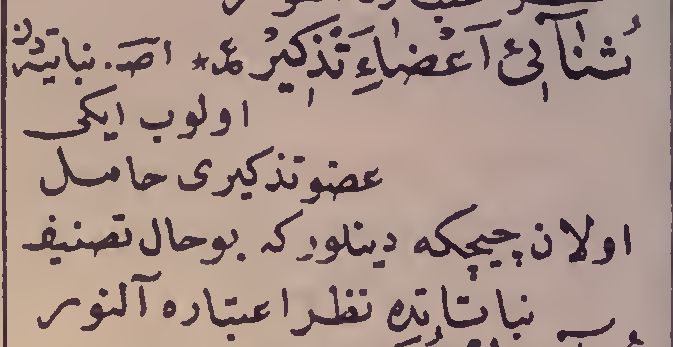 ثُنَآئِیُّ اَعْضَاءِ تَذْكِيرْ عـ٭ اصـ. نباتيه‌دن
اولوب ایکی
عضو تذکیری حامل
اولان چیچکه دینلور که بو حال تصنیف
نباتاتده نظر اعتباره آلنور